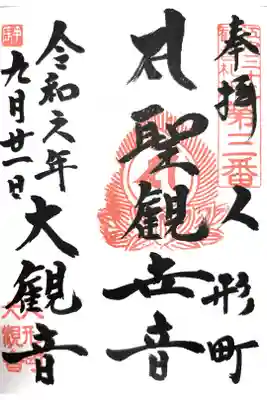 奉拝 人形町
聖観世音
大観音
令和元年
九月廿一日
第三番